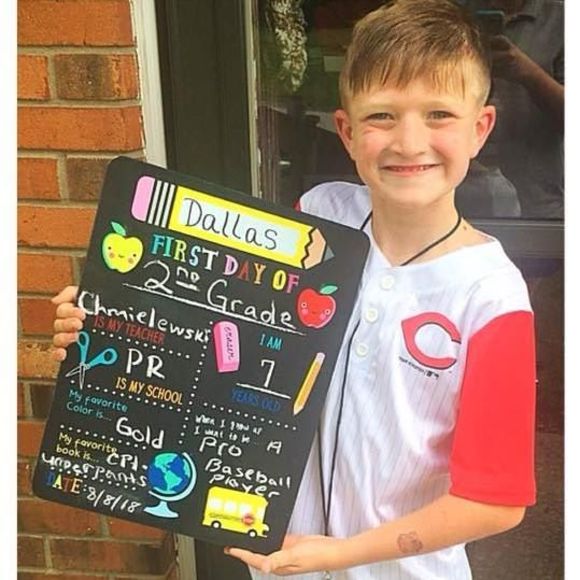 Dallas
FIRST DAY OF
2nd Grade
Chmielewski
IS MY TEACHER
eraser
I AM
PR
7
IS MY SCHOOL
YEARS OLD
My favorite
Color is...
Gold
When I grow up
I want to be... A
Pro
Baseball
Player
My favorite
book is... CPt.
underpants
DATE: 8/8/18
C